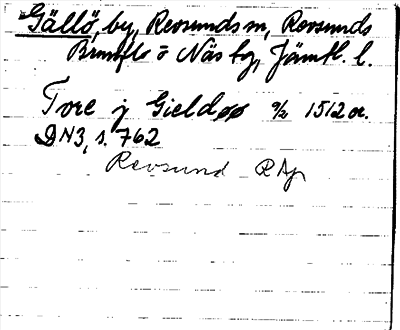 Gällö, by, Revsunds sn, Revsunds
Brunflo o Näs tg, Jämtl. l.
Tore j Gieldøø 9/2 1512 or.
DN3, s. 762
Revsund RAp